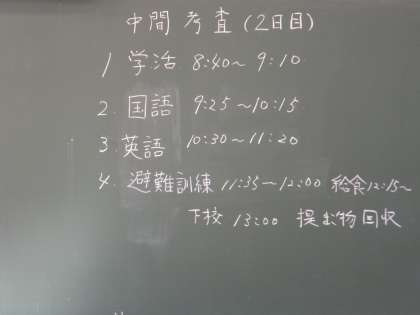 中間考査(2日目)
1 学活 8:40～9:10
2.国語 9:25～10:15
3.英語 10:30～11:20
4.避難訓練 11:35～12:00 給食12:15～
下校 13:00 提出物回収